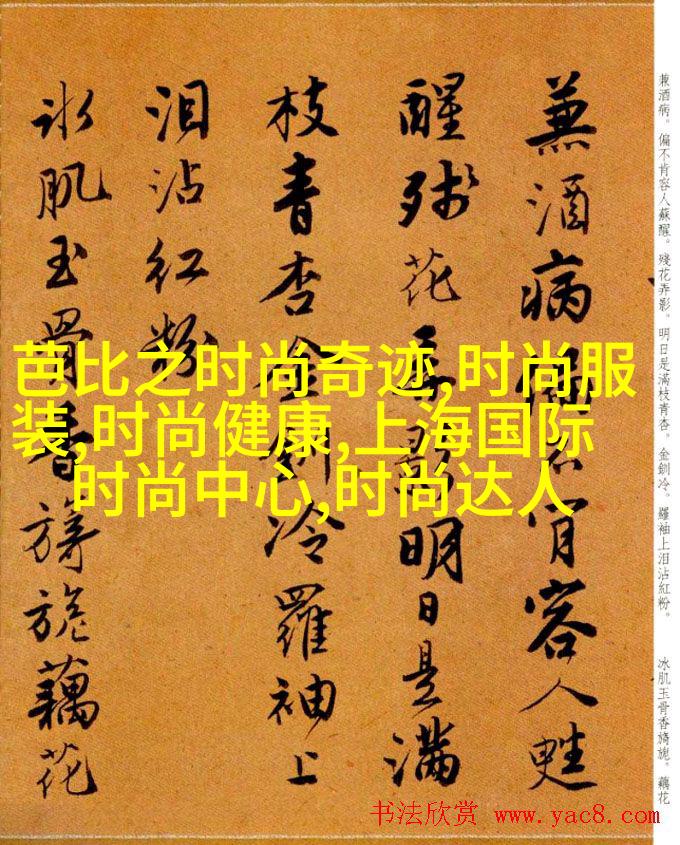 兼酒病偏不肯容人甦
醒残花弄影明日是滿
枝青杏金釧冷羅袖上
泪沾红粉
冰肌玉骨香旖旎藕花
兼酒病。偏不肯容人蘇醒。殘花弄影。明日是滿枝青杏。金釧冷。羅袖上泪沾紅粉。 冰肌玉骨香旖旎。藕花
芭比之时尚奇迹,时尚服
装,时尚健康,上海国际
时尚中心,时尚达人
书法欣赏 www.yac8.com